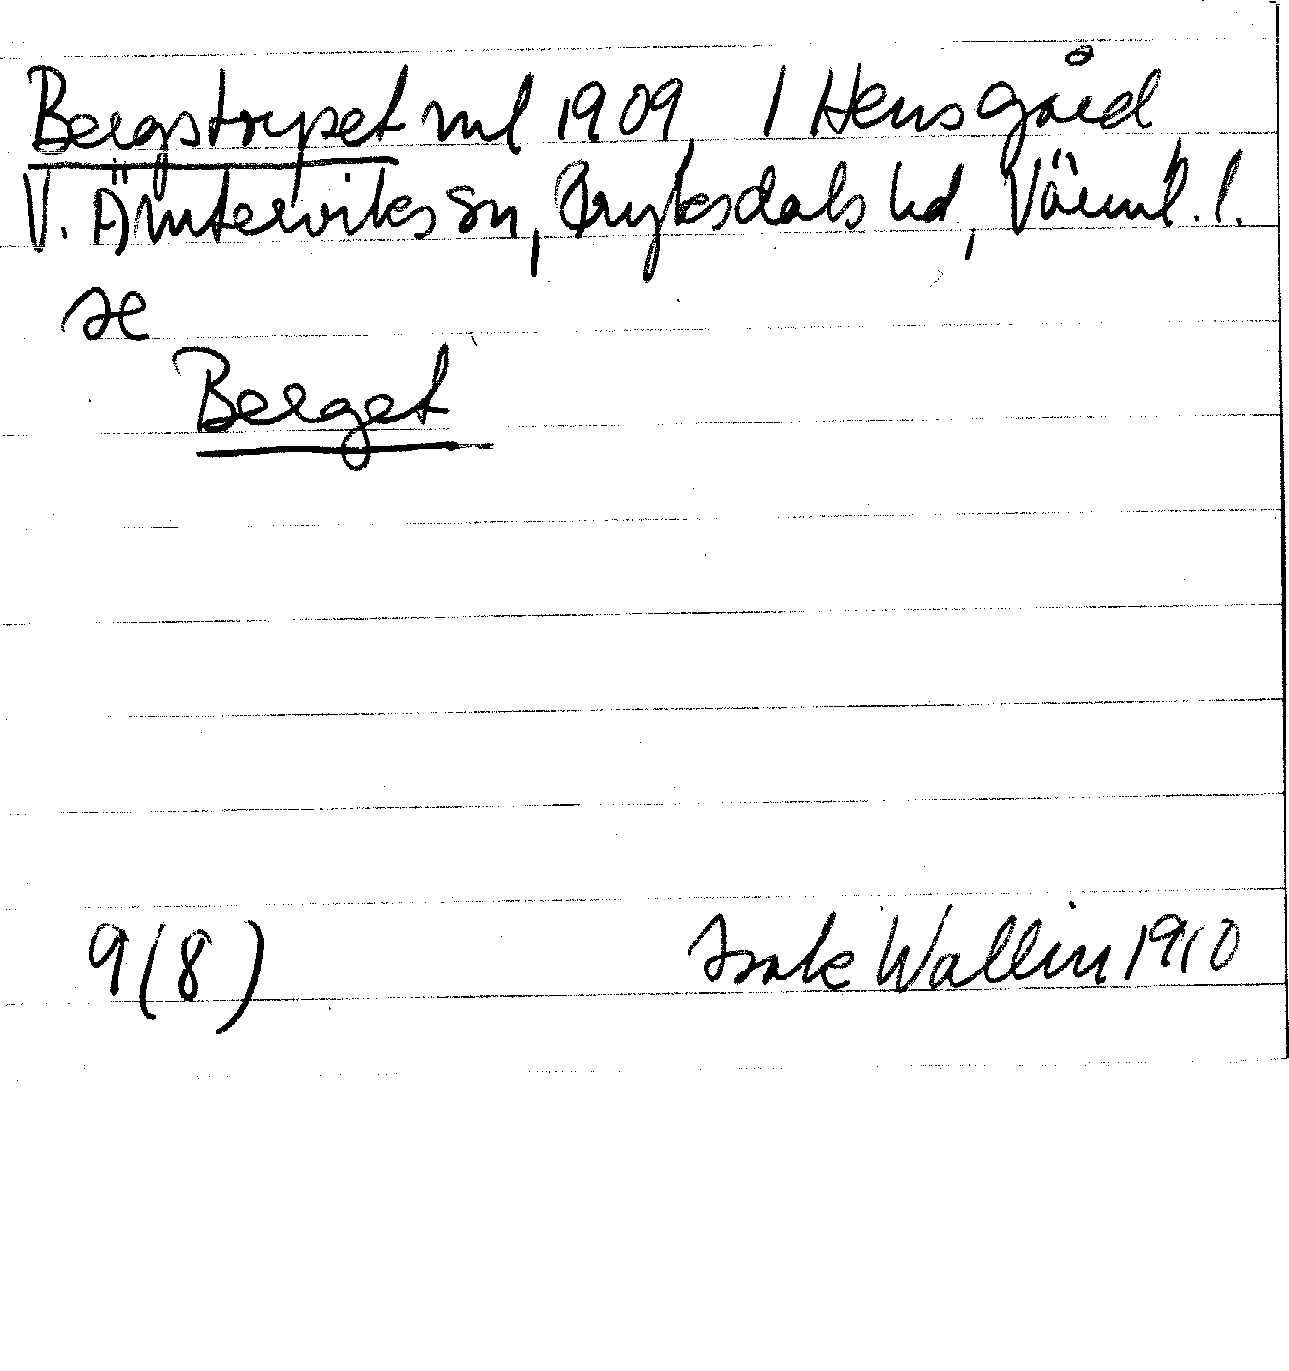 Bergstorpet nml 1909, 1 Hersgård
V. Ämterviks sn, Fryksdals hd, Värml. l.
se
Berget
9(8)
Isak Wallin 1910